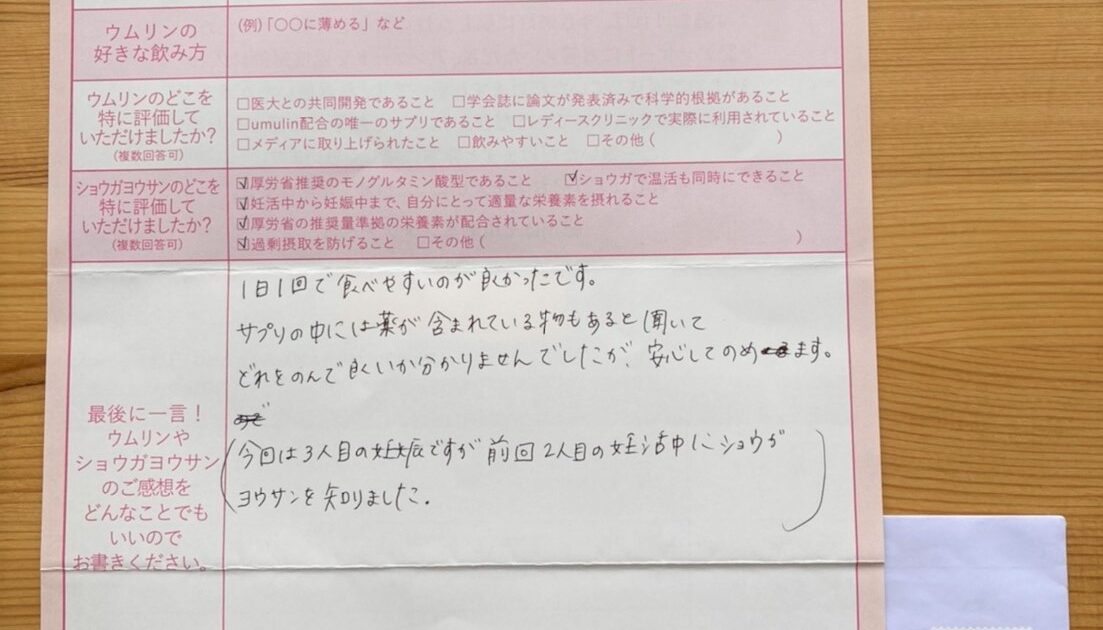 ウムリンの
好きな飲み方
(例)「〇〇に薄める」など
ウムリンのどこを
特に評価して
いただけましたか?
(複数回答可)
□医大との共同開発であること □学会誌に論文が発表済みで科学的根拠があること
□umulin配合の唯一のサプリであること □レディースクリニックで実際に利用されていること
□メディアに取り上げられたこと □飲みやすいこと □その他 ( )
ショウガヨウサンのどこを
特に評価して
いただけましたか?
(複数回答可)
☑厚労省推奨のモノグルタミン酸型であること ☑ショウガで温活も同時にできること
☑妊活中から妊娠中まで、自分にとって適量な栄養素を摂れること
☑厚労省の推奨量準拠の栄養素が配合されていること
☑過剰摂取を防げること □その他 ( )
最後に一言!
ウムリンや
ショウガヨウサン
のご感想を
どんなことでも
いいので
お書きください。
1日1回で食べやすいのが良かったです。
サプリの中には薬が含まれている物もあると聞いて
どれをのんで良いか分かりませんでしたが、安心してのめます。
(今回は3人目の妊娠ですが前回2人目の妊活中にショウガ
ヨウサンを知りました.)